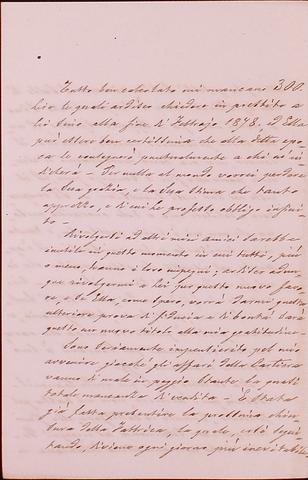 Tutto ben calcolato mi mancano 300
lire le quali ardisco chiedere in prestito a
lei sino alla fine di Febbrajo 1878, ed Ella
può essere ben certissima che alla detta epo-
ca le consegnerò puntualmente a chi m'in-
dicherà – Per nulla al mondo vorrei perdere
la Sua grazia, e la Sua stima che tanto
apprezzo, e di cui le professo obbligo infini-
to –
Rivolgermi ad altri miei amici sarebbe
inutile in questo momento in cui tutti, più
o meno, hanno i loro impegni; ardisco adun-
que rivolgermi a Lei per questo nuovo favo-
re, e se Ella, come spero, vorrà darmi questa
ulteriore prova di fiducia e di bontà sarà
questo un nuovo titolo alla mia gratitudine.
Sono seriamente impensierito pel mio
avvenire giacchè gli affari della Cartiera
vanno di male in peggio stante la quasi
totale mancanza di vendita – È stata
già fatta presentire la prossima chiu-
sura della Fabbrica, la quale, così segui-
tando, diviene ogni giorno più inevitabile